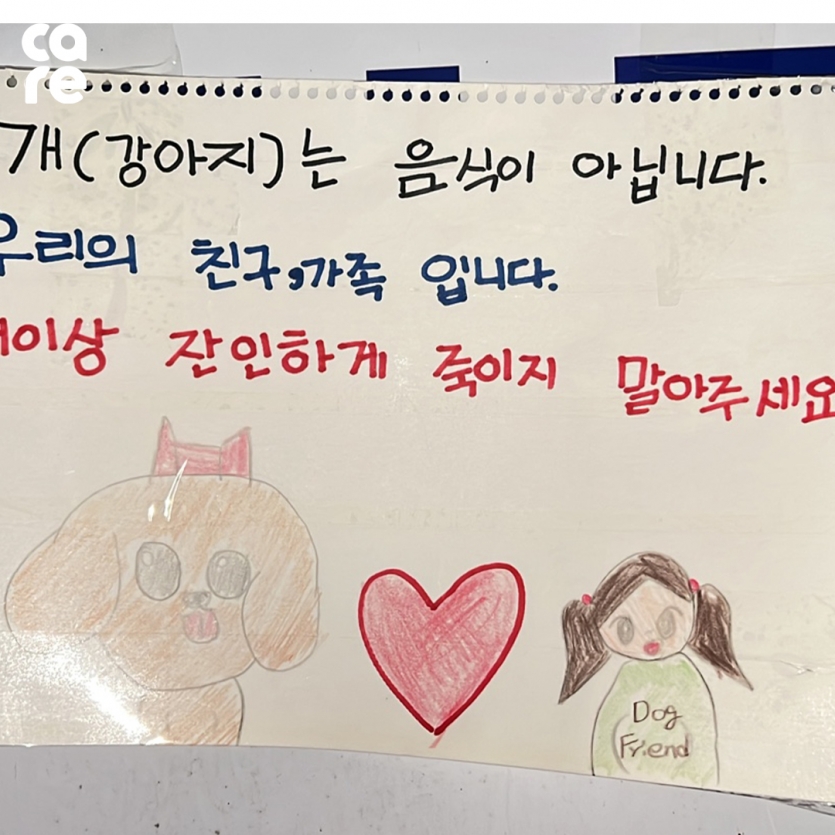 care
개(강아지)는 음식이 아닙니다.
우리의 친구,가족 입니다.
이상 잔인하게 죽이지 말아주세요
Dog
Friend